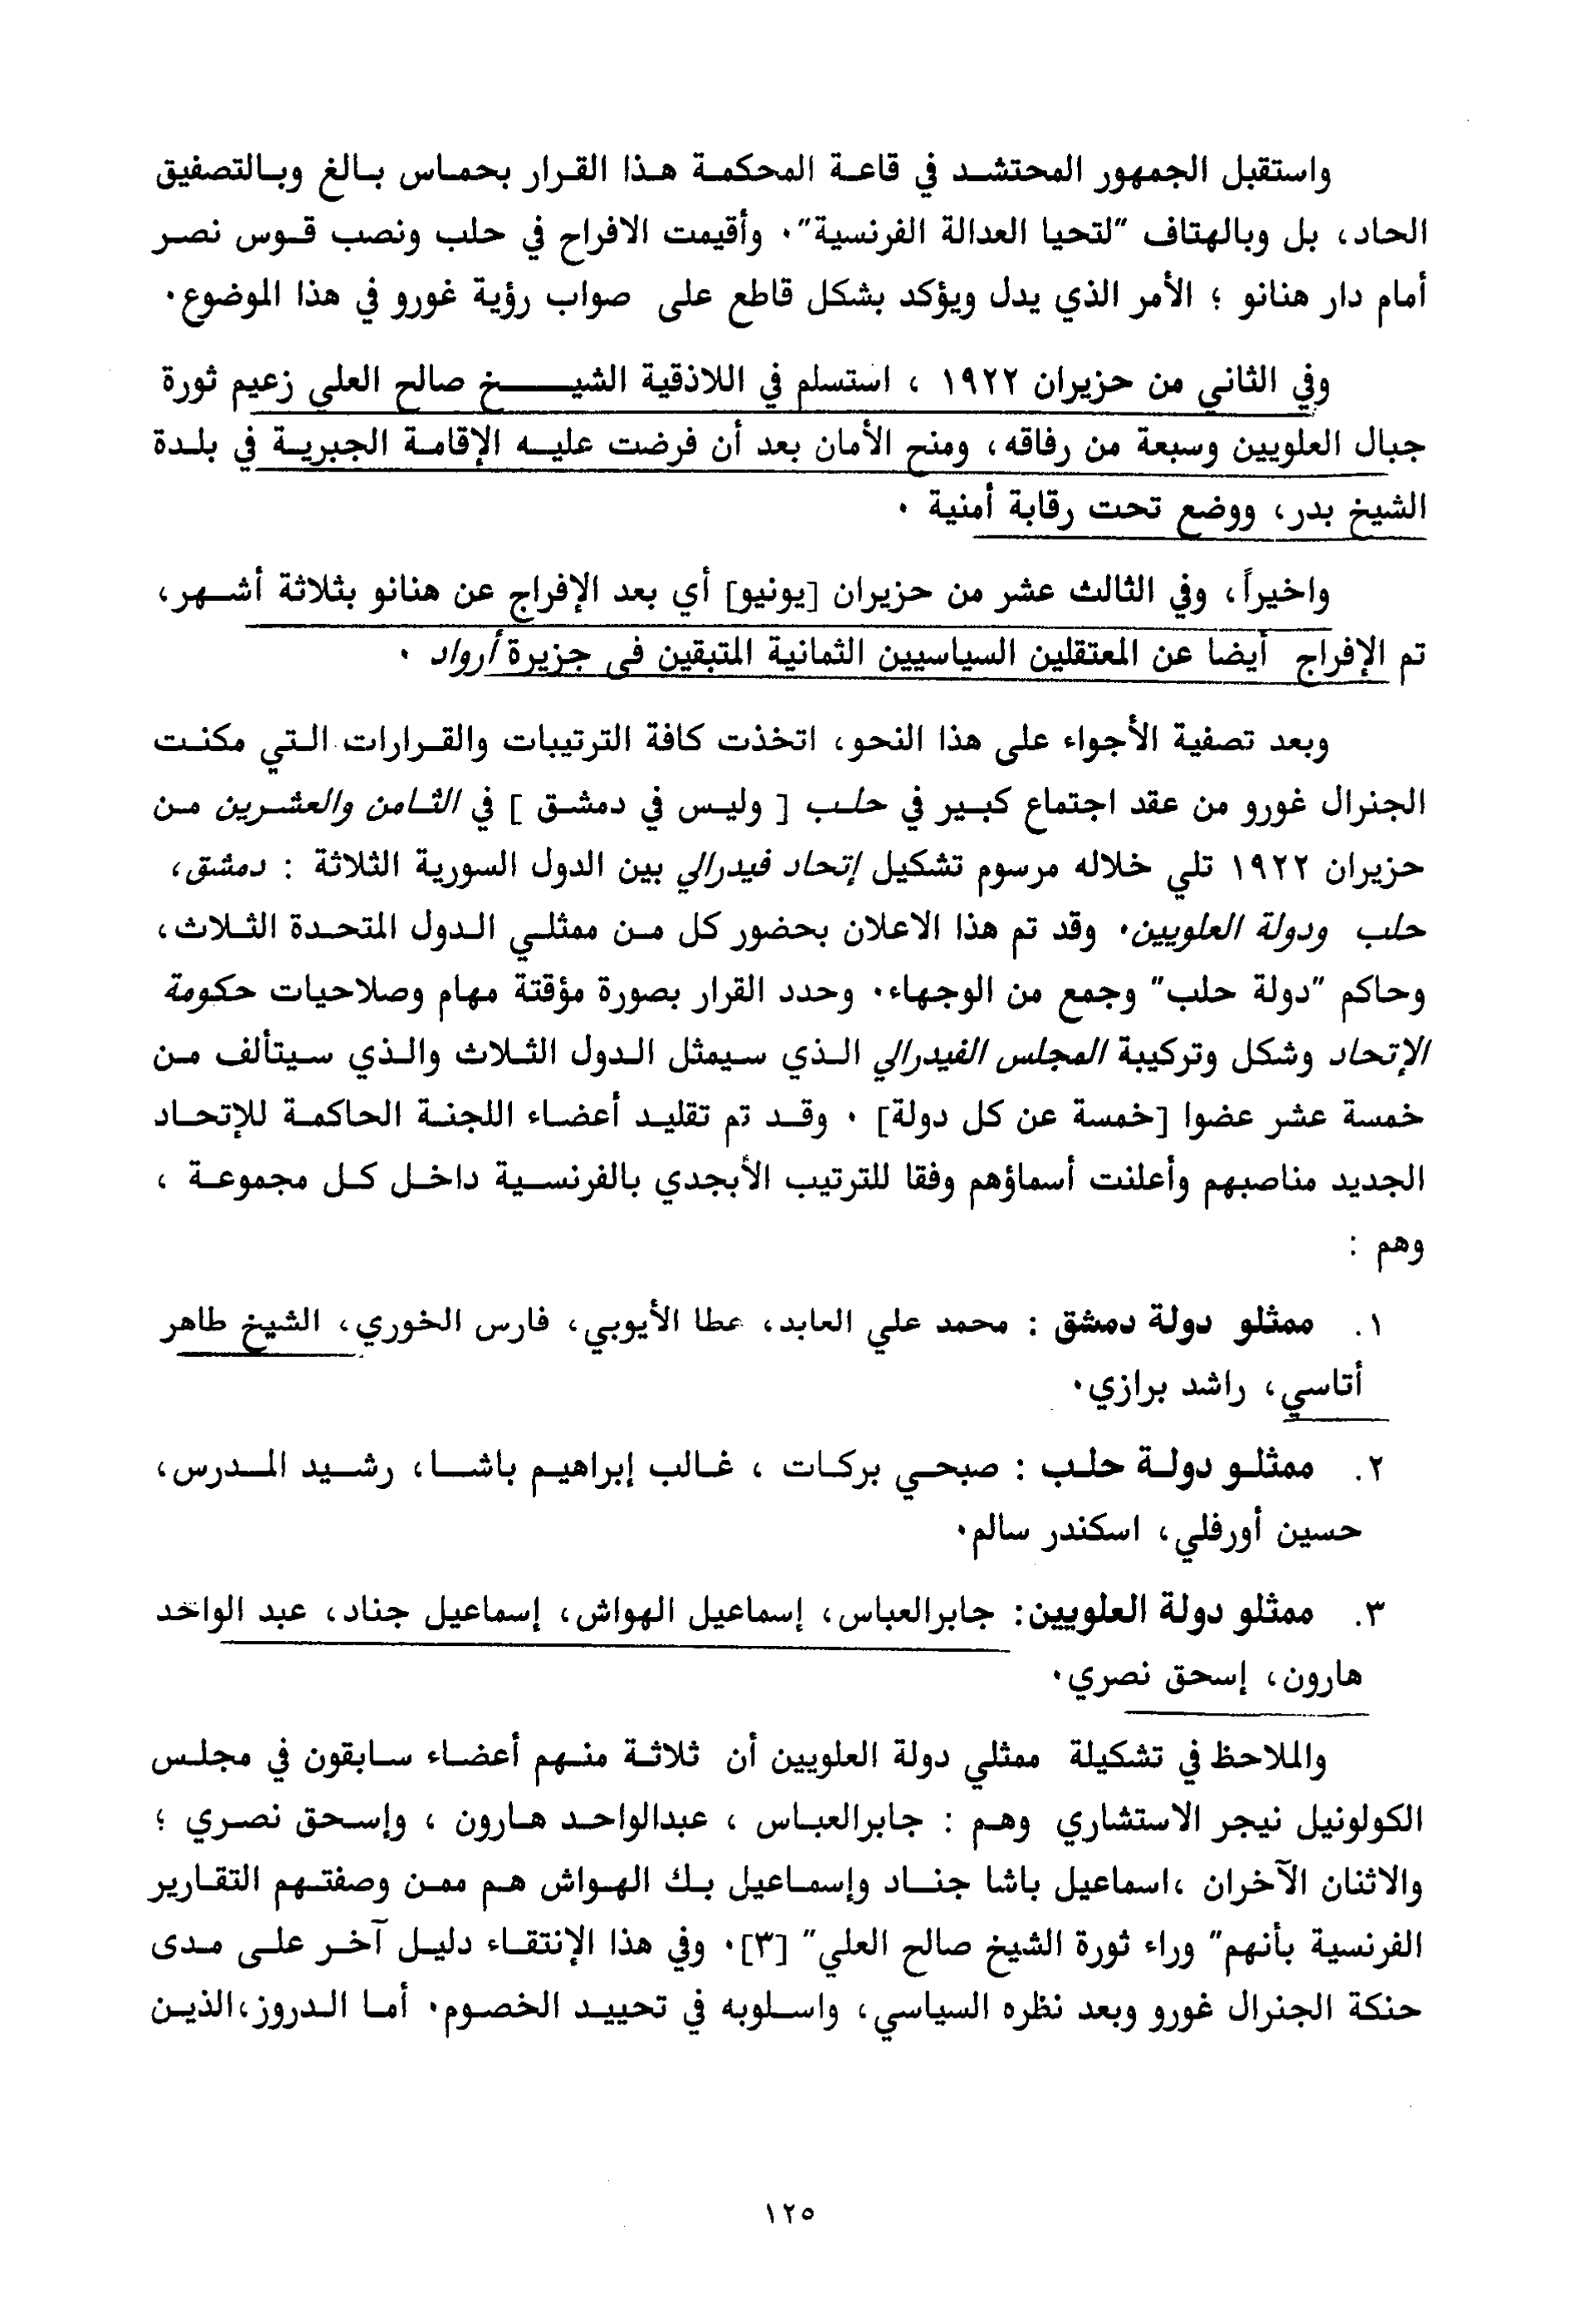 واستقبل الجمهور المحتشد في قاعة المحكمة هذا القرار بحماس بالغ وبالتصفيق
الحاد، بل وبالهتاف "لتحيا العدالة الفرنسية"٠ وأقيمت الافراح في حلب ونصب قوس نصر
أمام دار هنانو ؛ الأمر الذي يدل ويؤكد بشكل قاطع على صواب رؤية غورو في هذا الموضوع٠
وفي الثاني من حزيران ١٩٢٢ ، استسلم في اللاذقية الشيخ صالح العلي زعيم ثورة
جبال العلويين وسبعة من رفاقه، ومنح الأمان بعد أن فرضت عليه الإقامة الجبرية في بلدة
الشيخ بدر، ووضع تحت رقابة أمنية ٠
واخيراً، وفي الثالث عشر من حزيران [يونيو] أي بعد الإفراج عن هنانو بثلاثة أشهر،
تم الإفراج أيضا عن المعتقلين السياسيين الثمانية المتبقين في جزيرة أرواد ٠
وبعد تصفية الأجواء على هذا النحو، اتخذت كافة الترتيبات والقرارات التي مكنت
الجنرال غورو من عقد اجتماع كبير في حلب [ وليس في دمشق ] في الثامن والعشرين من
حزيران ١٩٢٢ تلي خلاله مرسوم تشكيل إتحاد فيدرالي بين الدول السورية الثلاثة : دمشق،
حلب ودولة العلويين٠ وقد تم هذا الاعلان بحضور كل من ممثلي الدول المتحدة الثلاث،
وحاكم "دولة حلب" وجمع من الوجهاء٠ وحدد القرار بصورة مؤقتة مهام وصلاحيات حكومة
الإتحاد وشكل وتركيبة المجلس الفيدرالي الذي سيمثل الدول الثلاث والذي سيتألف من
خمسة عشر عضوا [خمسة عن كل دولة] ٠ وقد تم تقليد أعضاء اللجنة الحاكمة للإتحاد
الجديد مناصبهم وأعلنت أسماؤهم وفقا للترتيب الأبجدي بالفرنسية داخل كل مجموعة ،
وهم :
١. ممثلو دولة دمشق : محمد علي العابد، عطا الأيوبي، فارس الخوري، الشيخ طاهر
أتاسي، راشد برازي٠
٢. ممثلو دولة حلب : صبحي بركات ، غالب إبراهيم باشا، رشيد المدرس،
حسين أورفلي، اسكندر سالم٠
٣. ممثلو دولة العلويين: جابرالعباس، إسماعيل الهواش، إسماعيل جناد، عبد الواحد
هارون، إسحق نصري٠
والملاحظ في تشكيلة ممثلي دولة العلويين أن ثلاثة منهم أعضاء سابقون في مجلس
الكولونيل نيجر الاستشاري وهم : جابرالعباس ، عبدالواحد هارون ، وإسحق نصري ؛
والاثنان الآخران ،اسماعيل باشا جناد وإسماعيل بك الهواش هم ممن وصفتهم التقارير
الفرنسية بأنهم" وراء ثورة الشيخ صالح العلي" [٣]٠ وفي هذا الإنتقاء دليل آخر على مدى
حنكة الجنرال غورو وبعد نظره السياسي، واسلوبه في تحييد الخصوم٠ أما الدروز،الذين
١٢٥